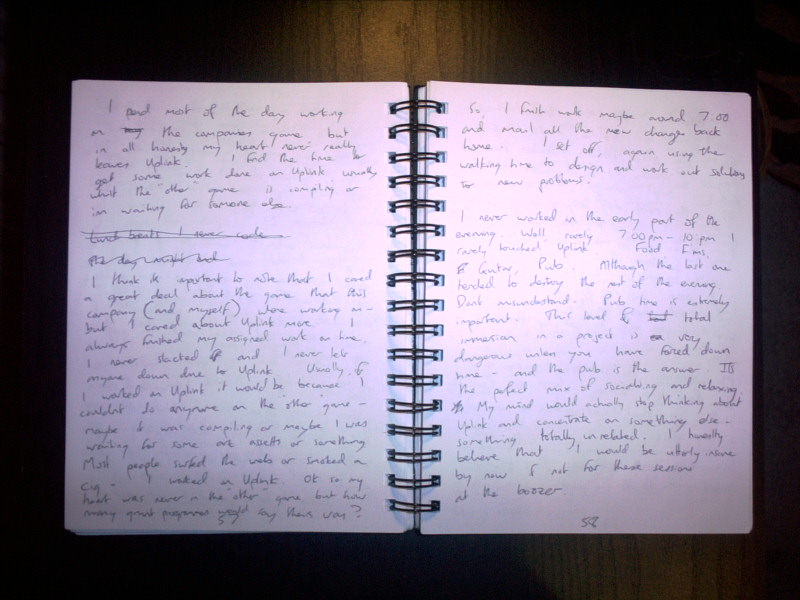 I pend most of the day working
on the companies game but
in all honesty my heart never really
leaves Uplink. I find the time to
get some work done on Uplink usually
whilst the "other" game is compiling or
im waiting for someone else.
Lunch breaks I never code
I think is important to note that I cared
a great deal about the game that this
company (and myself) were working on -
but I cared about Uplink more. I
always finished my assigned work on time.
I never slacked off and I never let
anyone down due to Uplink. Usually, if
I worked on Uplink it would be because I
couldnt do anymore on the "other" game -
maybe it was compiling or maybe I was
waiting for some art assets or something
Most people surfed the web or smoked a
cig - I worked on Uplink. Ok so my
heart was never in the "other" game, but how
many games programmers would say theirs was?
So, I finish work maybe around 7.00
and mail all the new changes back
home. I set off, again using the
walking time to design and work out solutions
to new problems.
I never worked in the early part of the
evening. Well rarely 7.00pm - 10pm I
rarely touched Uplink. Food, Films,
Guitar, Pub. Although the last one
tended to destroy the rest of the evening.
Dont misunderstand. Pub time is extremely
important. This level of total
immersion in a project is very
dangerous unless you have forced down
time - and the pub is the answer. Its
the perfect mix of socialising and relaxing.
My mind would actually stop thinking about
Uplink and concentrate on something else -
something totally unrelated. I honestly
believe that I would be utterly insane
by now if not for these sessions
at the boozer.